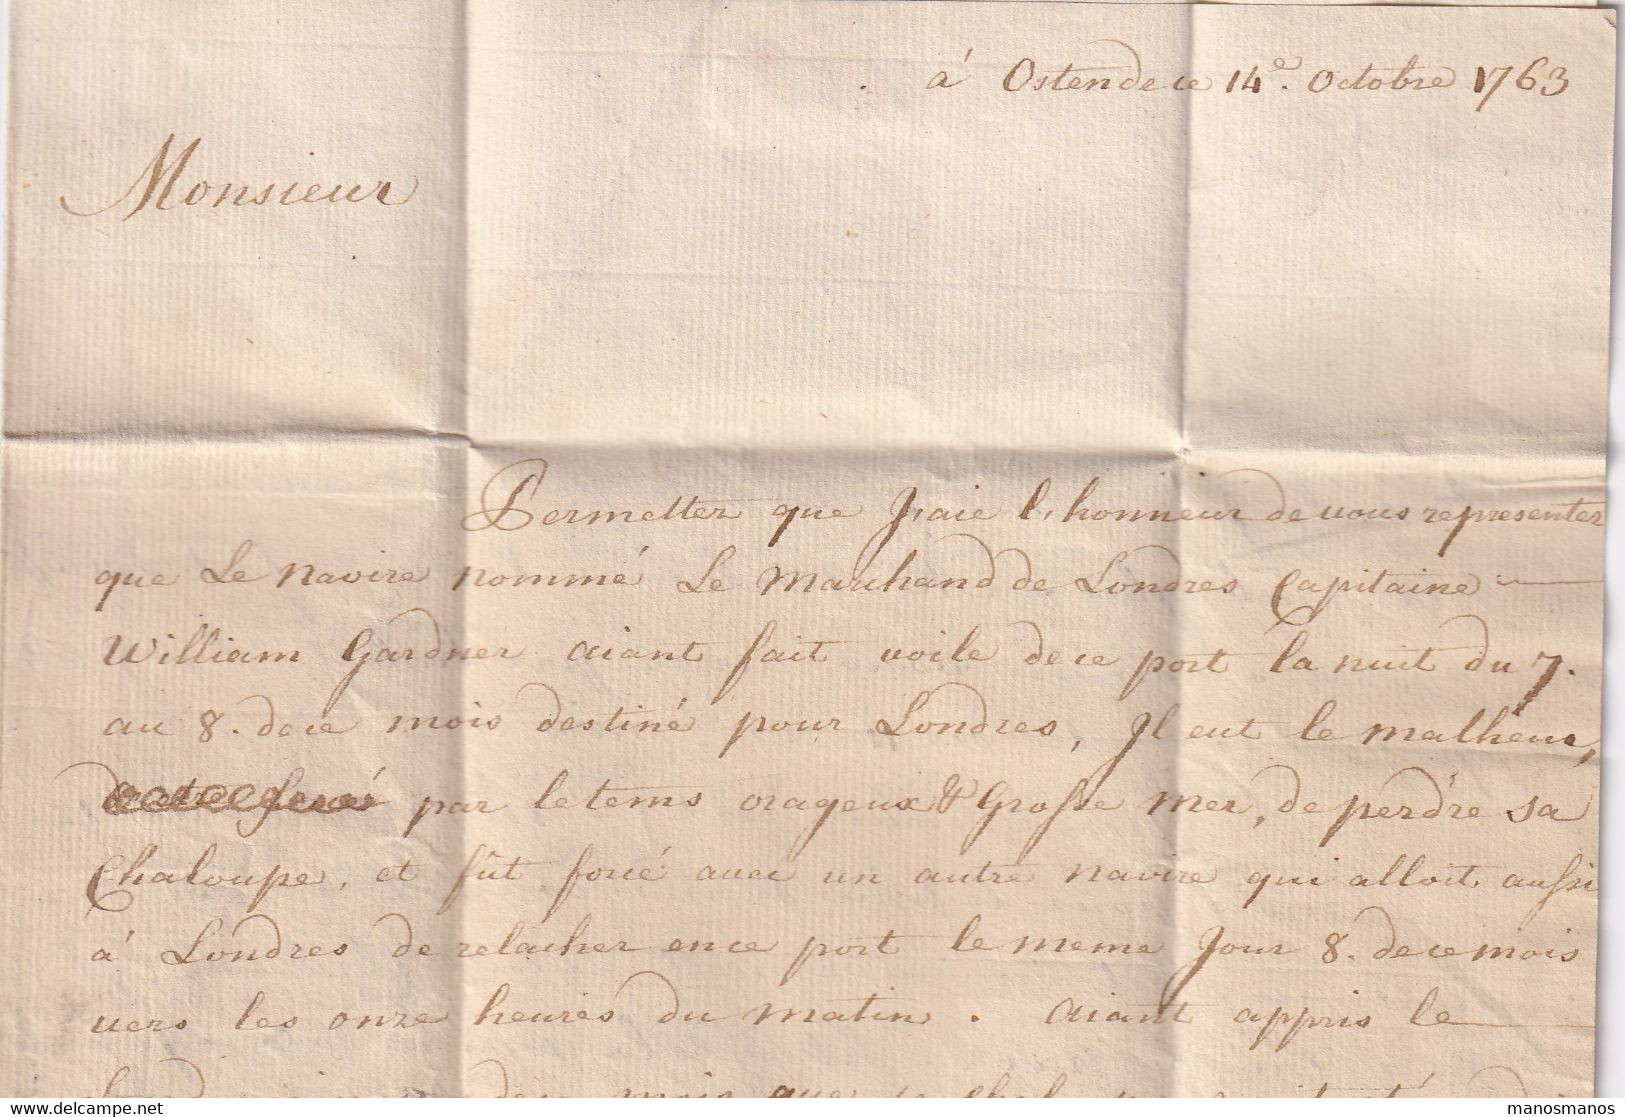 à Ostende ce 14.e Octobre 1763
Monsieur
Permetter que J'aie l'honneur de vous representer
que Le navire nommé Le Marchand de Londres Capitaine
William Gardner aiant fait voile de ce port la nuit du 7.
au 8. de ce mois destiné pour Londres, Il eut le malheur,
par le tems orageux & Grosse mer, de perdre sa
Chaloupe, et fût forcé avec un autre navire qui alloit aussi
à Londres de relacher en ce port le meme Jour 8. de ce mois
vers les onze heures du matin. aiant appris le
mois que
manosmanos